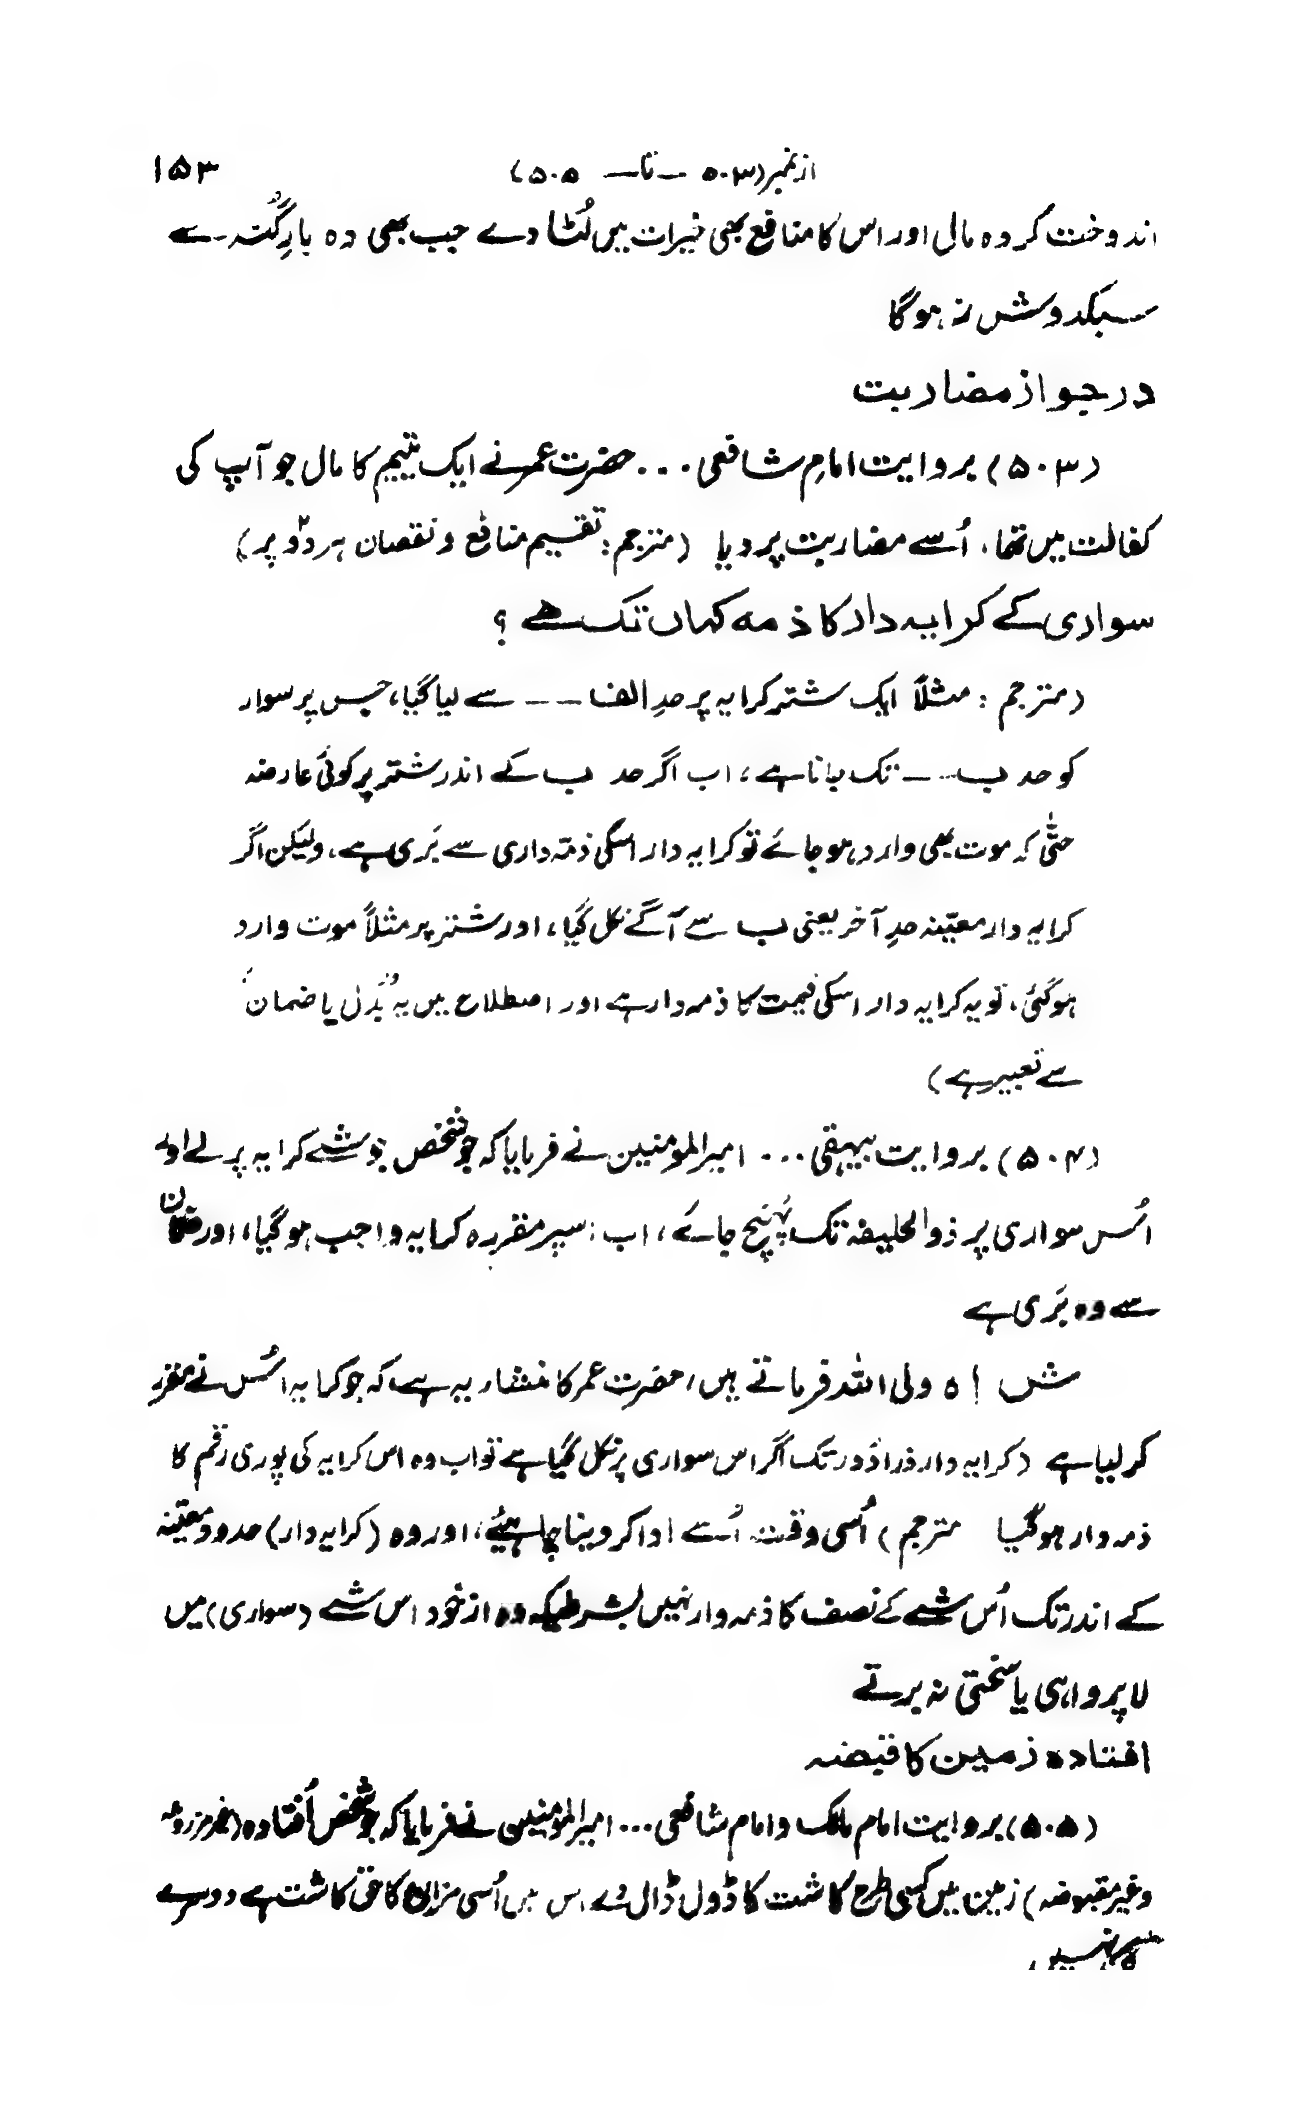 از نمبر (۵۰۳ — تا — ۵۰۵) ۱۵۳
اندوخت کردہ مالی اور اس کا منافع بھی خیرات میں لُٹا دے جب بھی وہ بارِ گنہ سے
سبکدوش نہ ہوگا
در جواز مضاربت
(۵۰۳) بروایت امام شافعی ... حضرت عمر نے ایک یتیم کا مال جو آپ کی
کفالت میں تھا، اُسے مضاربت پر دیا (مترجم: تقسیم منافع و نقصان ہر دو پر)
سواری کے کرایہ دار کا ذمہ کہاں تک ہے ؟
(مترجم : مثلاً ایک شتر کرایہ پر حدِ الف -- سے لیا گیا، جس پر سوار
کو حد ب -- تک جانا ہے، اب اگر حد ب کے اندر شتر پر کوئی عارضہ
حتّٰی کہ موت بھی وارد ہو جائے تو کرایہ دار اسکی ذمّہ داری سے بَری ہے، ولیکن اگر
کرایہ دار معیّنہ حدِ آخر یعنی ب سے آگے نکل گیا، اور شتر پر مثلاً موت وارد
ہو گئی، تو یہ کرایہ دار اسکی قیمت کا ذمہ دار ہے اور اصطلاح میں یہ بَدَل یا ضمان
سے تعبیر ہے)
(۵۰۴) بروایت بیہقی ... امیر المومنین نے فرمایا کہ جو شخص جو شے کرایہ پر لے اور
اُس سواری پر ذوالحلیفہ تک پہنچ جائے، اب: سپر مقررہ کرایہ واجب ہو گیا، اور ضمان
سے وہ بَری ہے
ش ! ہ ولی اللہ فرماتے ہیں، حضرت عمر کا منشاء یہ ہے کہ جو کرایہ اُس نے مقرر
کر لیا ہے (کرایہ دار ذرا دُور تک اگر اس سواری پر نکل گیا ہے تو اب وہ اس کرایہ کی پوری رقم کا
ذمہ دار ہو گیا مترجم) اُسی وقت اُسے ادا کر دینا چاہئیے، اور وہ (کرایہ دار) حدود معیّنہ
کے اندر تک اُس شے کے نصف کا ذمہ دار نہیں بشرطیکہ وہ از خود اس شے (سواری) میں
لا پرواہی یا سختی نہ برتے
افتادہ زمین کا قبضہ
(۵۰۵) بروایت امام مالک و امام شافعی ... امیر المومنین نے فرمایا کہ جو شخص اُفتادہ (غیر مزروعہ
و غیر مقبوضہ) زمین میں کسی طرح کاشت کا ڈول ڈال دے اس میں اُسی مزارع کا حق کاشت ہے دوسرے
کا نہیں